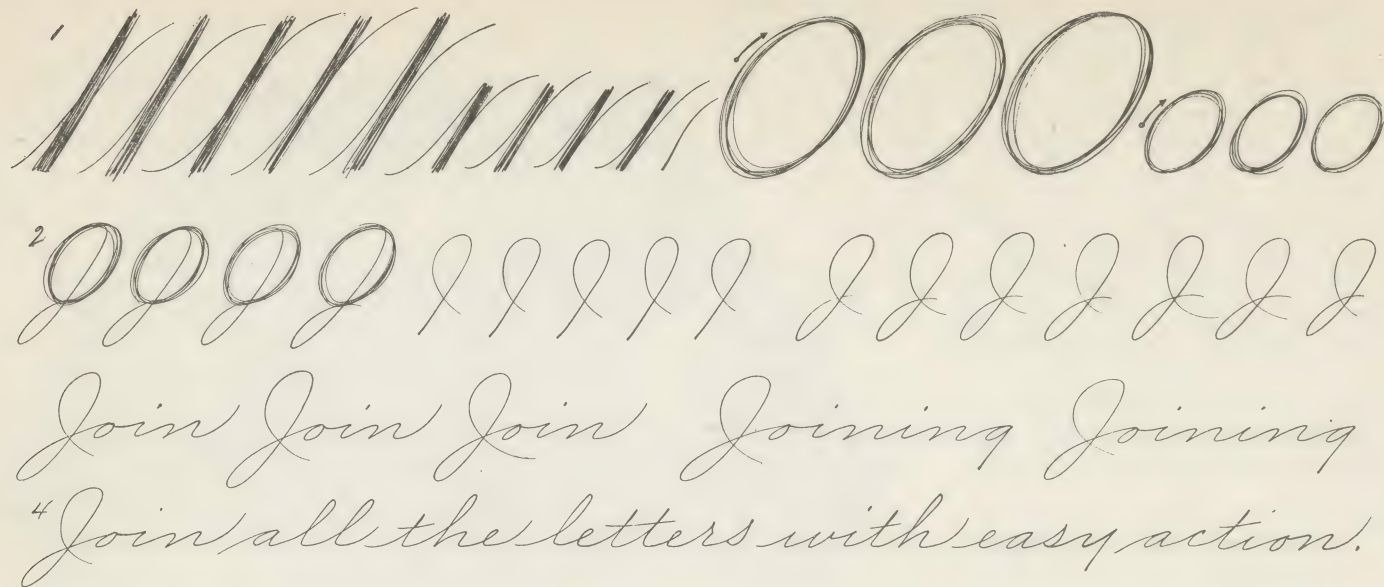 1
2 J J J J J J J
Join Join Join Joining Joining
4 Join all the letters with easy action.